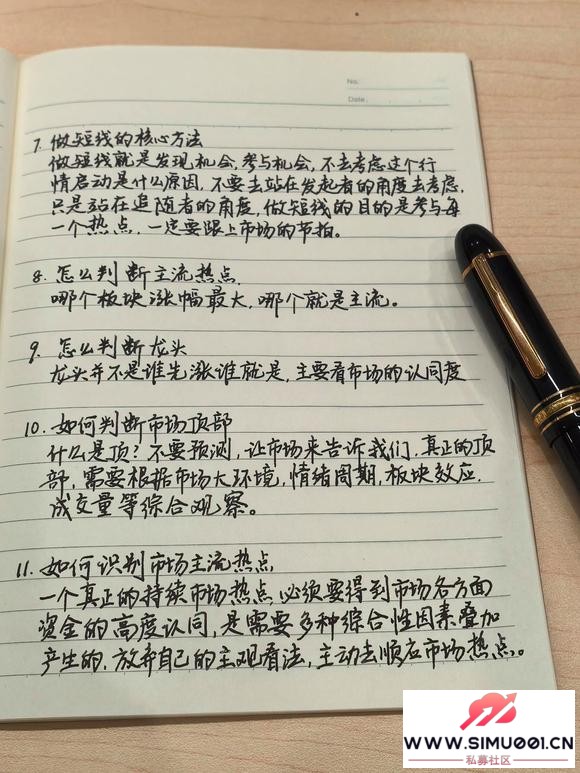 No.
Date.
7. 做短线的核心方法
做短线就是发现机会,参与机会,不去考虑这个行
情启动是什么原因,不要去站在发起者的角度去考虑,
只是站在追随者的角度,做短线的目的是参与每
一个热点,一定要跟上市场的节拍。
8. 怎么判断主流热点.
哪个板块涨幅最大,哪个就是主流。
9. 怎么判断龙头
龙头并不是谁先涨谁就是,主要看市场的认同度
10. 如何判断市场顶部
什么是顶?不要预测,让市场来告诉我们,真正的顶
部,需要根据市场大环境,情绪周期,板块效应,
成交量等综合观察。
11. 如何识别市场主流热点
一个真正的持续市场热点,必须要得到市场各方面
资金的高度认同,是需要多种综合性因素叠加
产生的,放弃自己的主观看法,主动去顺应市场热点。
WWW.SIMU001.CN
私募社区